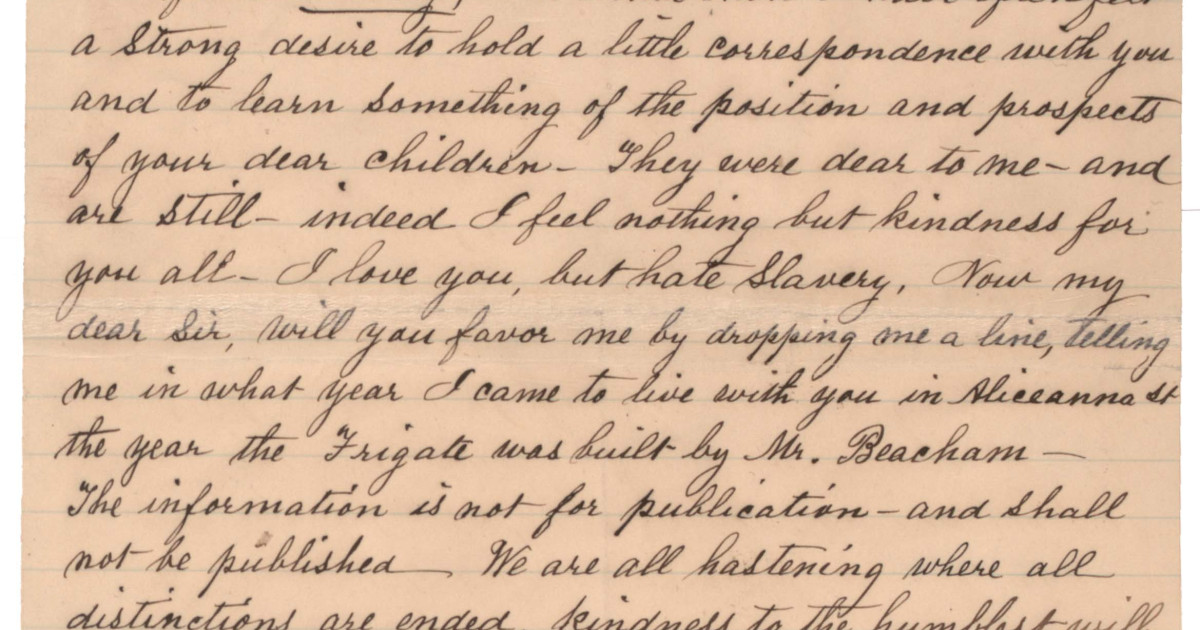 a strong desire to hold a little correspondence with you
and to learn something of the position and prospects
of your dear children – They were dear to me – and
are still – indeed I feel nothing but kindness for
you all – I love you, but hate Slavery, Now my
dear Sir, will you favor me by dropping me a line, telling
me in what year I came to live with you in Aliceanna St
the year the Frigate was built by Mr. Beacham —
The information is not for publication – and shall
not be published — We are all hastening where all
distinctions are ended, kindness to the humblest will